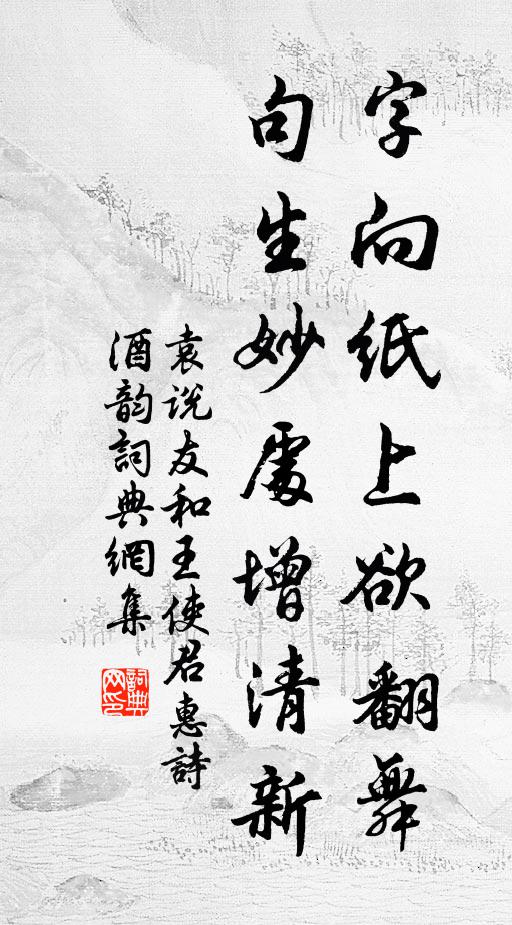 字向紙上欲翻舞
句生妙處增清新
袁说友和王使君惠詩
酒韵詞典網集
詞典
网印